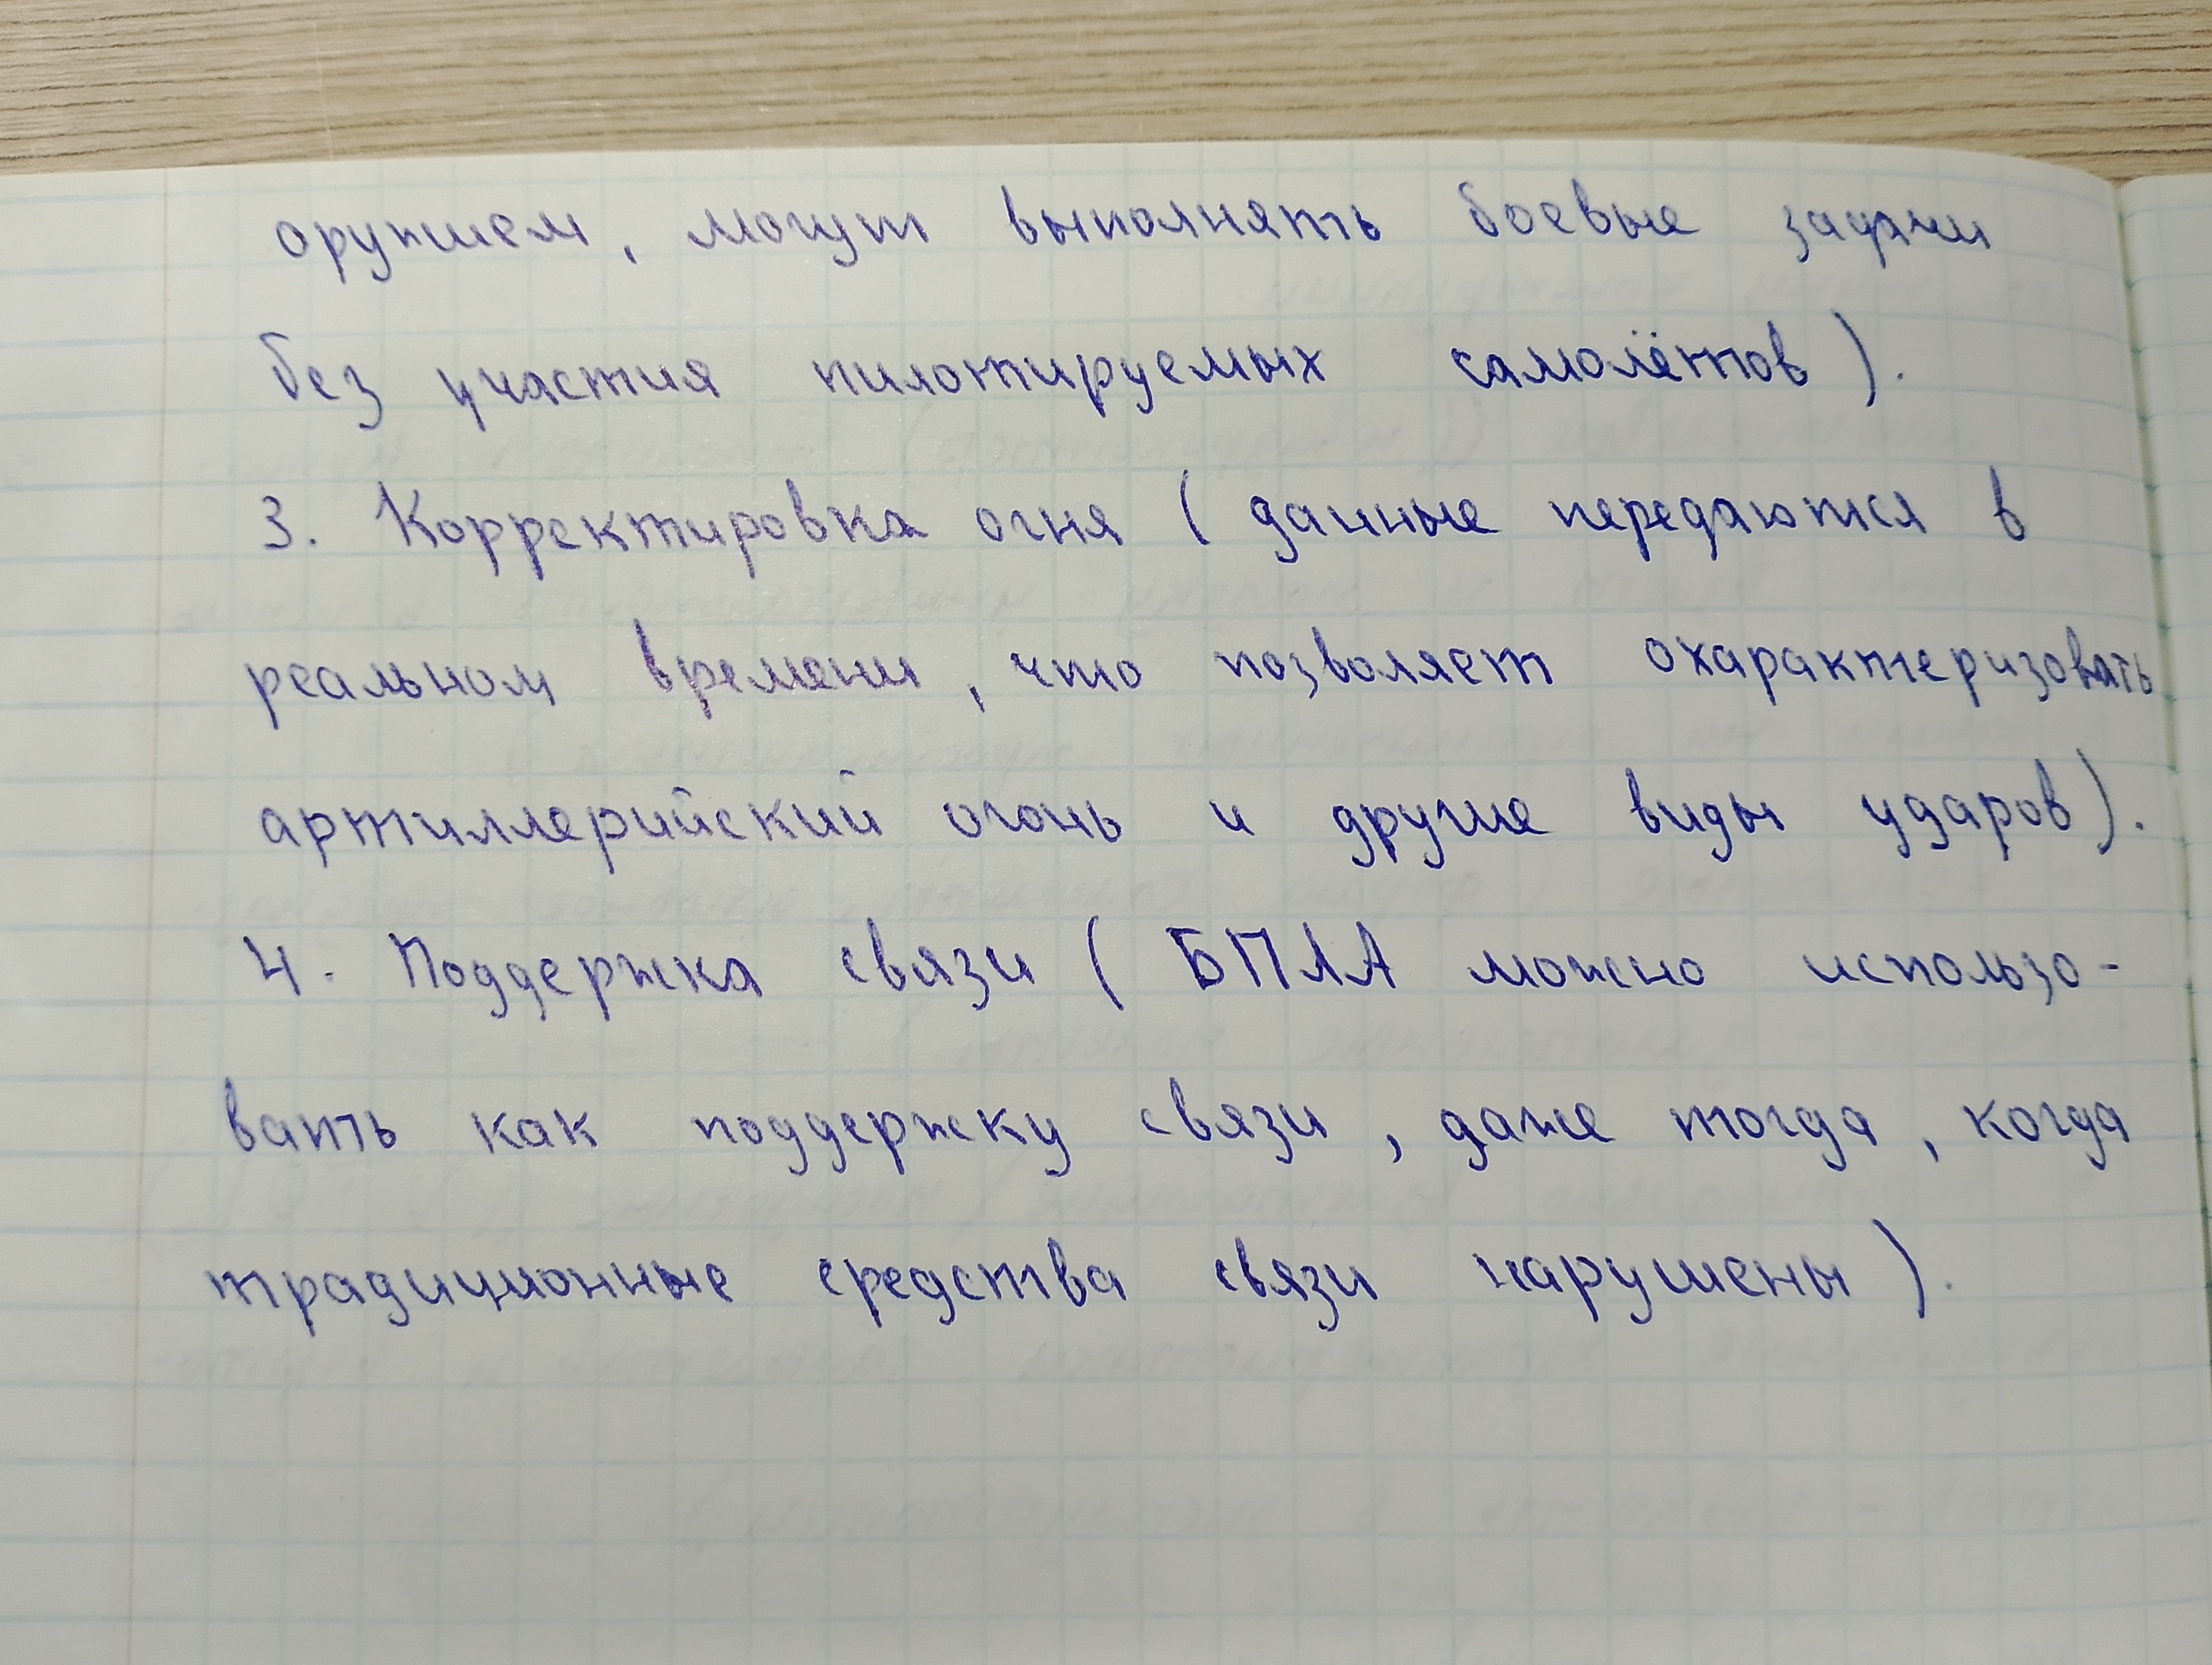 оружием, могут выполнять боевые задачи
без участия пилотируемых самолётов).
3. Корректировка огня (данные передаются в
реальном времени, что позволяет охарактеризовать
артиллерийский огонь и другие виды ударов).
4. Поддержка связи (БПЛА можно использо-
вать как поддержку связи, даже тогда, когда
традиционные средства связи нарушены).